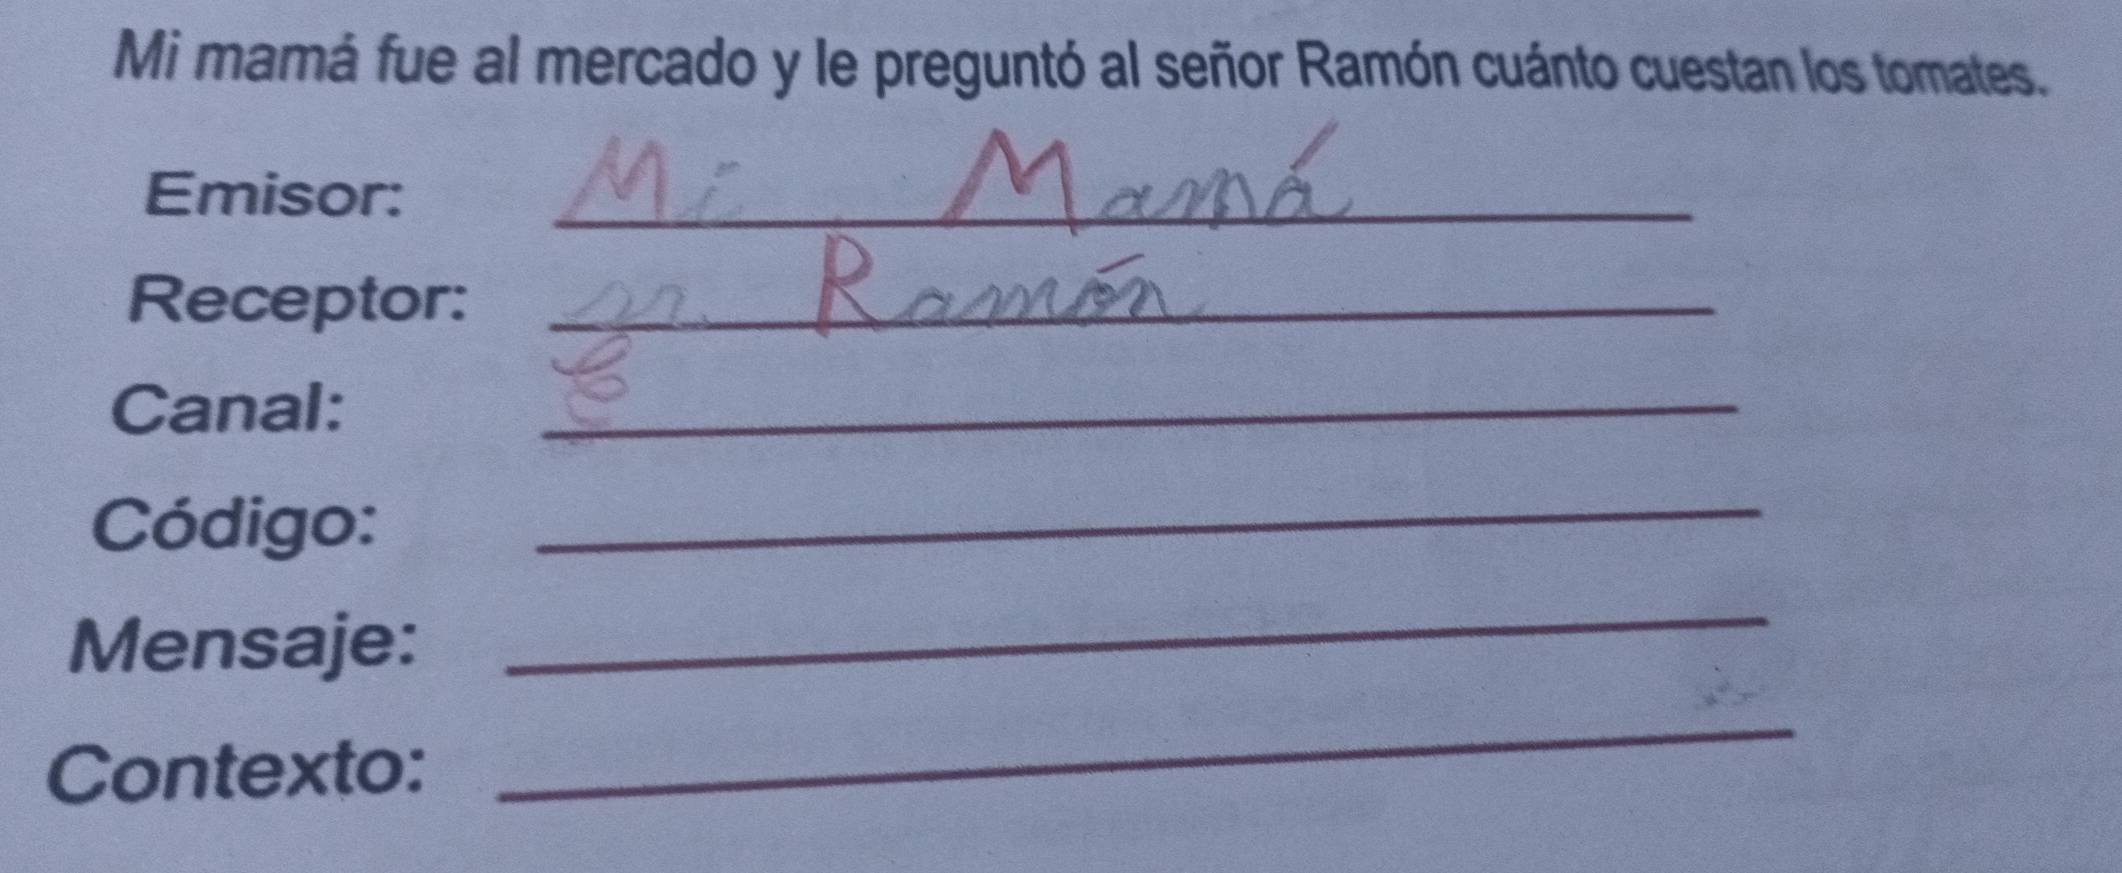 Mi mamá fue al mercado y le preguntó al señor Ramón cuánto cuestan los tomates.
Emisor: Mi Mamá
Receptor: Ramón
Canal:
Código:
Mensaje:
Contexto: